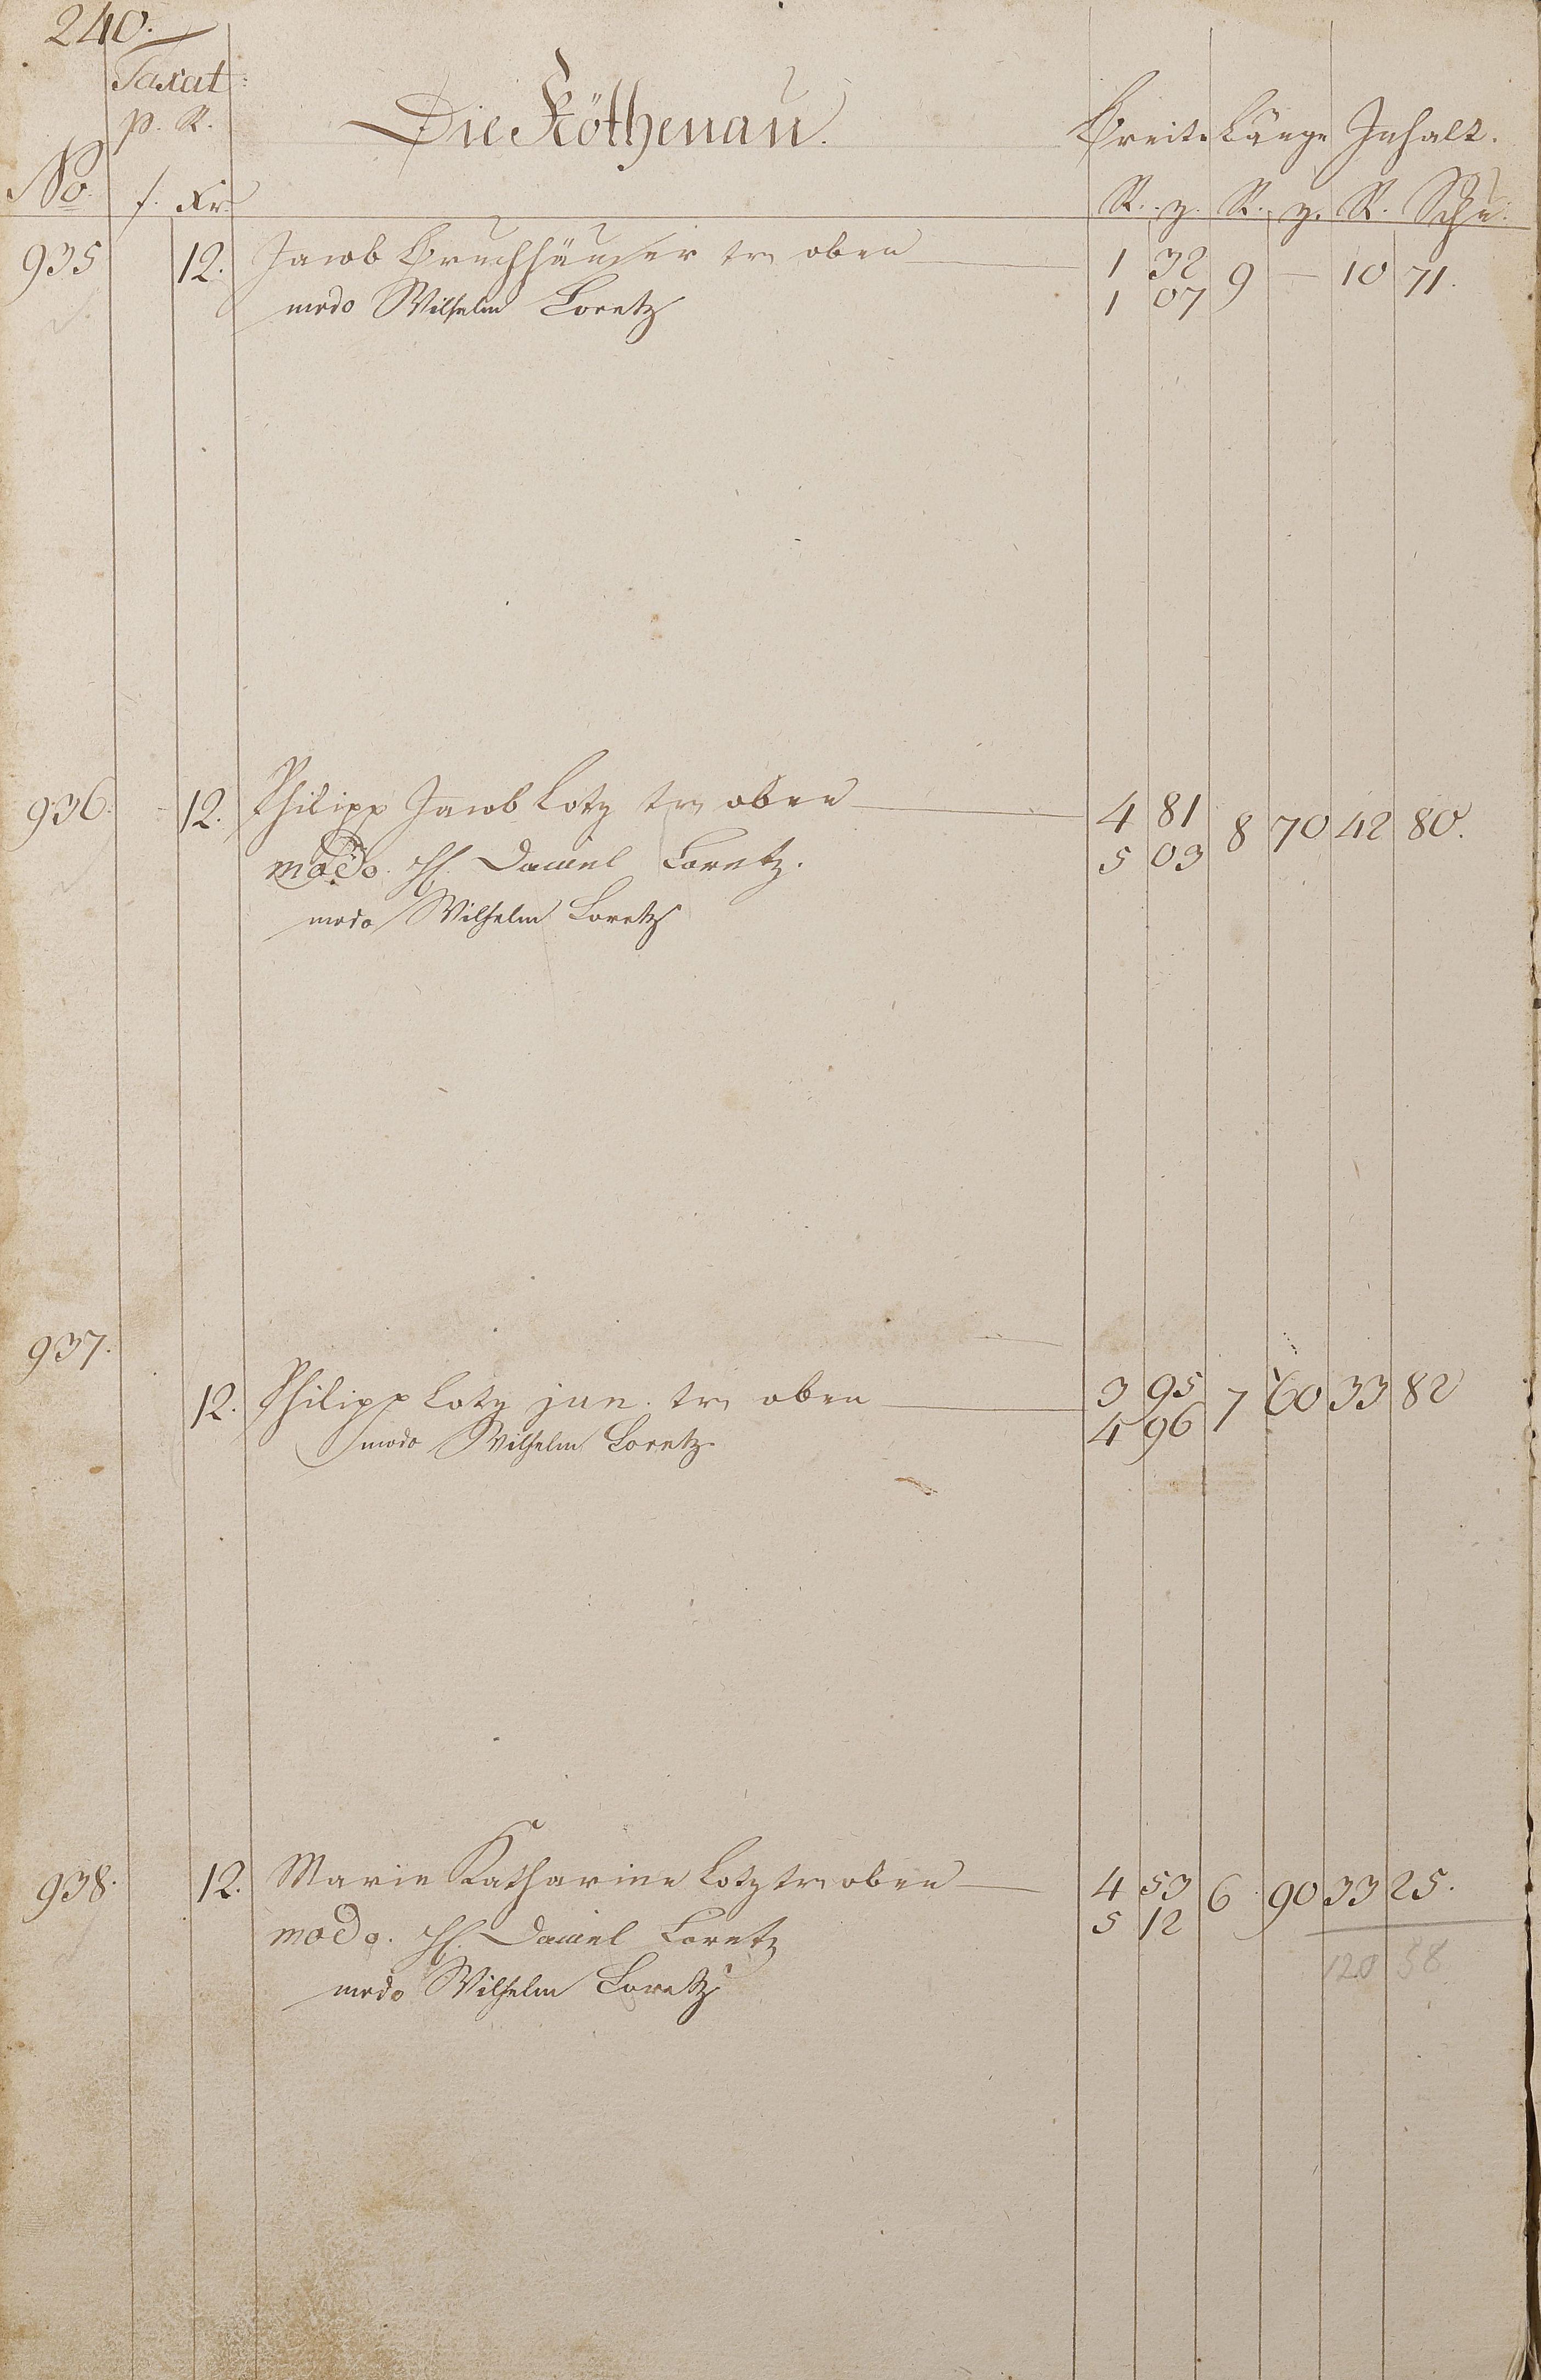 240.
Taxat:
p. R.
Die Köthenau.
Breite Länge Inhalt.
No. f. Xr. R. z. R. z. R. Schu.
935 12. Jacob Bruchhäuser modo oben 1 32 9 — 10 71.
modo Wilhelm Loretz 1 07
936. 12. Philipp Jacob Lotz oben 4 81 8 70 42 80.
modo. H. Daniel Loretz. 5 03
modo Wilhelm Loretz
937.
12. Philipp Lotz jun. oben 3 95 7 60 33 82
modo Wilhelm Loretz 4 96
938. 12. Marie Katharine Lotz oben 4 53 6 90 33 25.
modo. H. Daniel Loretz 5 12
120 58
modo Wilhelm Loretz